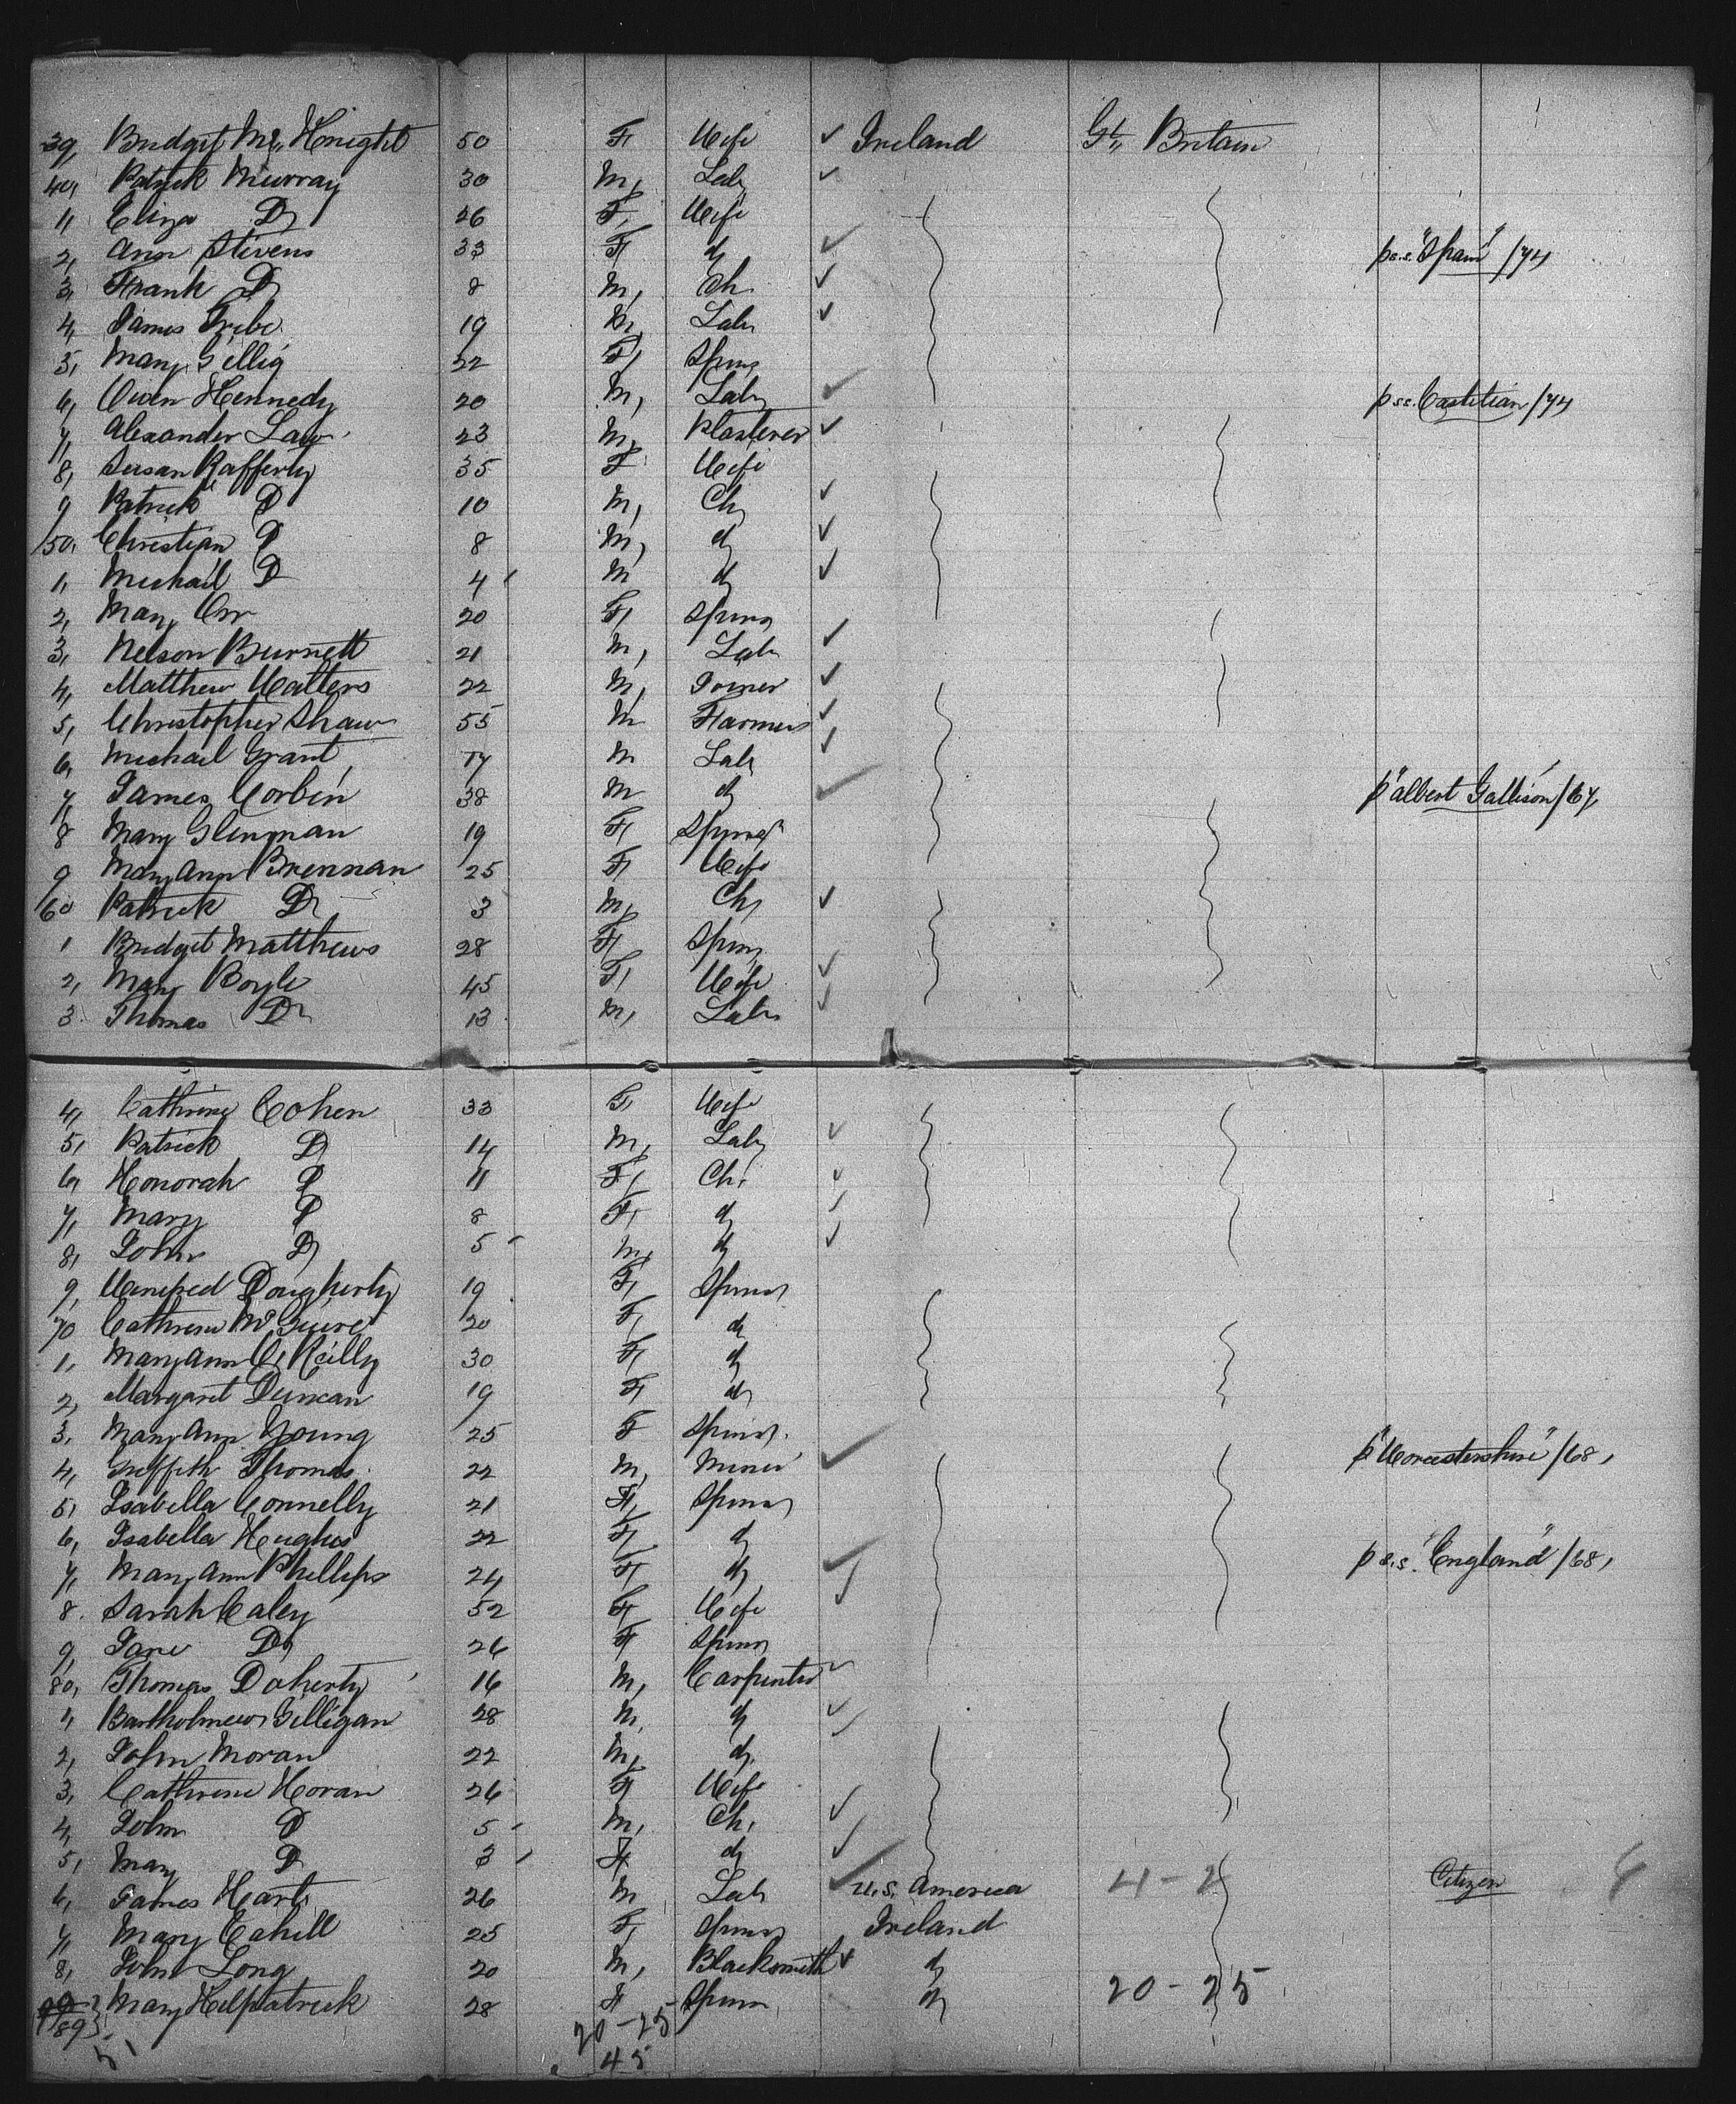 39, Bridget Mc Knight 50 F, Wife ✓ Ireland Gt. Britain
40, Patrick Murray 30 M, Labr ✓
1, Eliza Do 26 F, Wife
2, Ann Stivens 33 F, do ✓ p s.s. "Spain" /74
3, Frank Do 8 M, Ch. ✓
4, James Tribe 19 M, Labr ✓
5, Mary Gillig 22 F, Spins
6, Owen Kennedy 20 M, Labr ✓ p s.s. /74
7, Alexander Law 23 M, Plasterer ✓
8, Susan Rafferty 35 F Wife
9 Patrick Do 10 M, Ch, ✓
/50, Christian Do 8 M, do ✓
1, Michail Do 4 M do ✓
2, Mary Orr 20 F, Spins
3, Nelson Burnett 21 M, Labr ✓
4, Matthew Watters 22 M, Joiner ✓
5, Christopher Shaw 55 M Farmer ✓
6, Michail Grant 17 M Labr ✓
7, James Corbin 38 M do ✓ p "Albert Gallison /67,
8 Mary 19 F, Spins
9 Mary Ann Brennan 25 F, Wife
/60 Patrick Do 3 M, Ch, ✓
1 Bridget Matthews 28 F, Spins
2, Mary Boyle 45 F, Wife ✓
3. Thomas Do 13 M, Labr ✓
4, Cathrine Cohen 33 F, Wife
5, Patrick Do 14 M, Labr ✓
6, Honorah Do 11 F, Ch, ✓
7, Mary Do 8 F, do ✓
8, John Do 5 M, do ✓
9, Winefred Dougherty 19 F, Spins
70 Cathrine Mc Guire 20 F, do
1, Mary Ann O, Reilly 30 F, do
2, Margaret Duncan 19 F, do
3, Mary Ann Young 25 F Spins.
4, Griffith Thomas 22 M, Miner ✓ p "Worcestershire" /68,
5, Isabella Connelly 21 F, Spins
6, Isabella Hughes 22 F, do
7, Mary Ann Phillips 24 F, do ✓ p s.s. "England" /68,
8. Sarah Caley 52 F, Wife ✓
9, Jane Do 26 F, Spins
80, Thomas Doherty 16 M, Carpenter ✓
1, Bartholmew Gilligan 28 M, do ✓
2, John Moran 22 M, do. ✓
3, Cathrine Horan 26 F, Wife
4, John Do 5 M, Ch, ✓
5, Mary Do 3 F, do ✓
6, James Hart 26 M Labr ✓ U.S. America 4 - 2 Citizen
7, Mary Cahill 25 F, Spins Ireland
8, John Long 20 M, Blacksmith ✓ do
89 Mary Kilpatrick 28 F Spins do 20 - 25
51 20 - 25
45